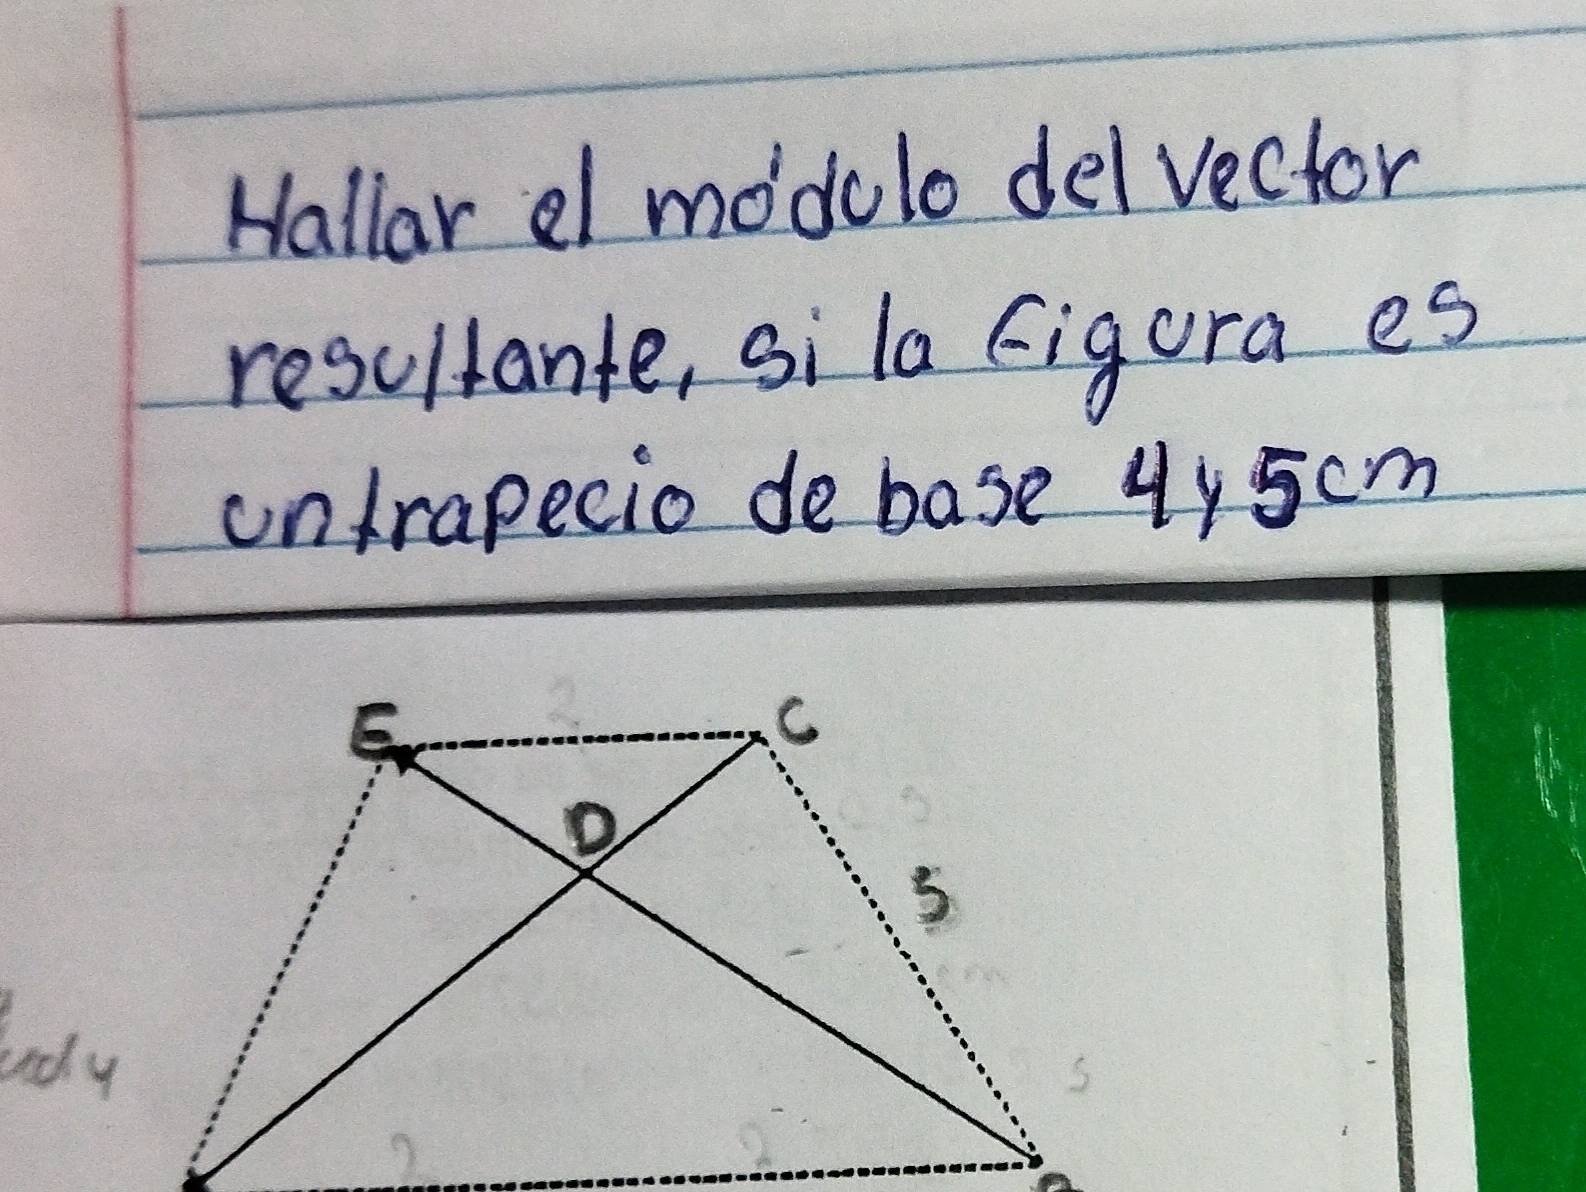 Hallar el módulo del vector
resultante, si la figura es
un trapecio de base 4 y 5cm
E 2 C
D
5
5
2 2